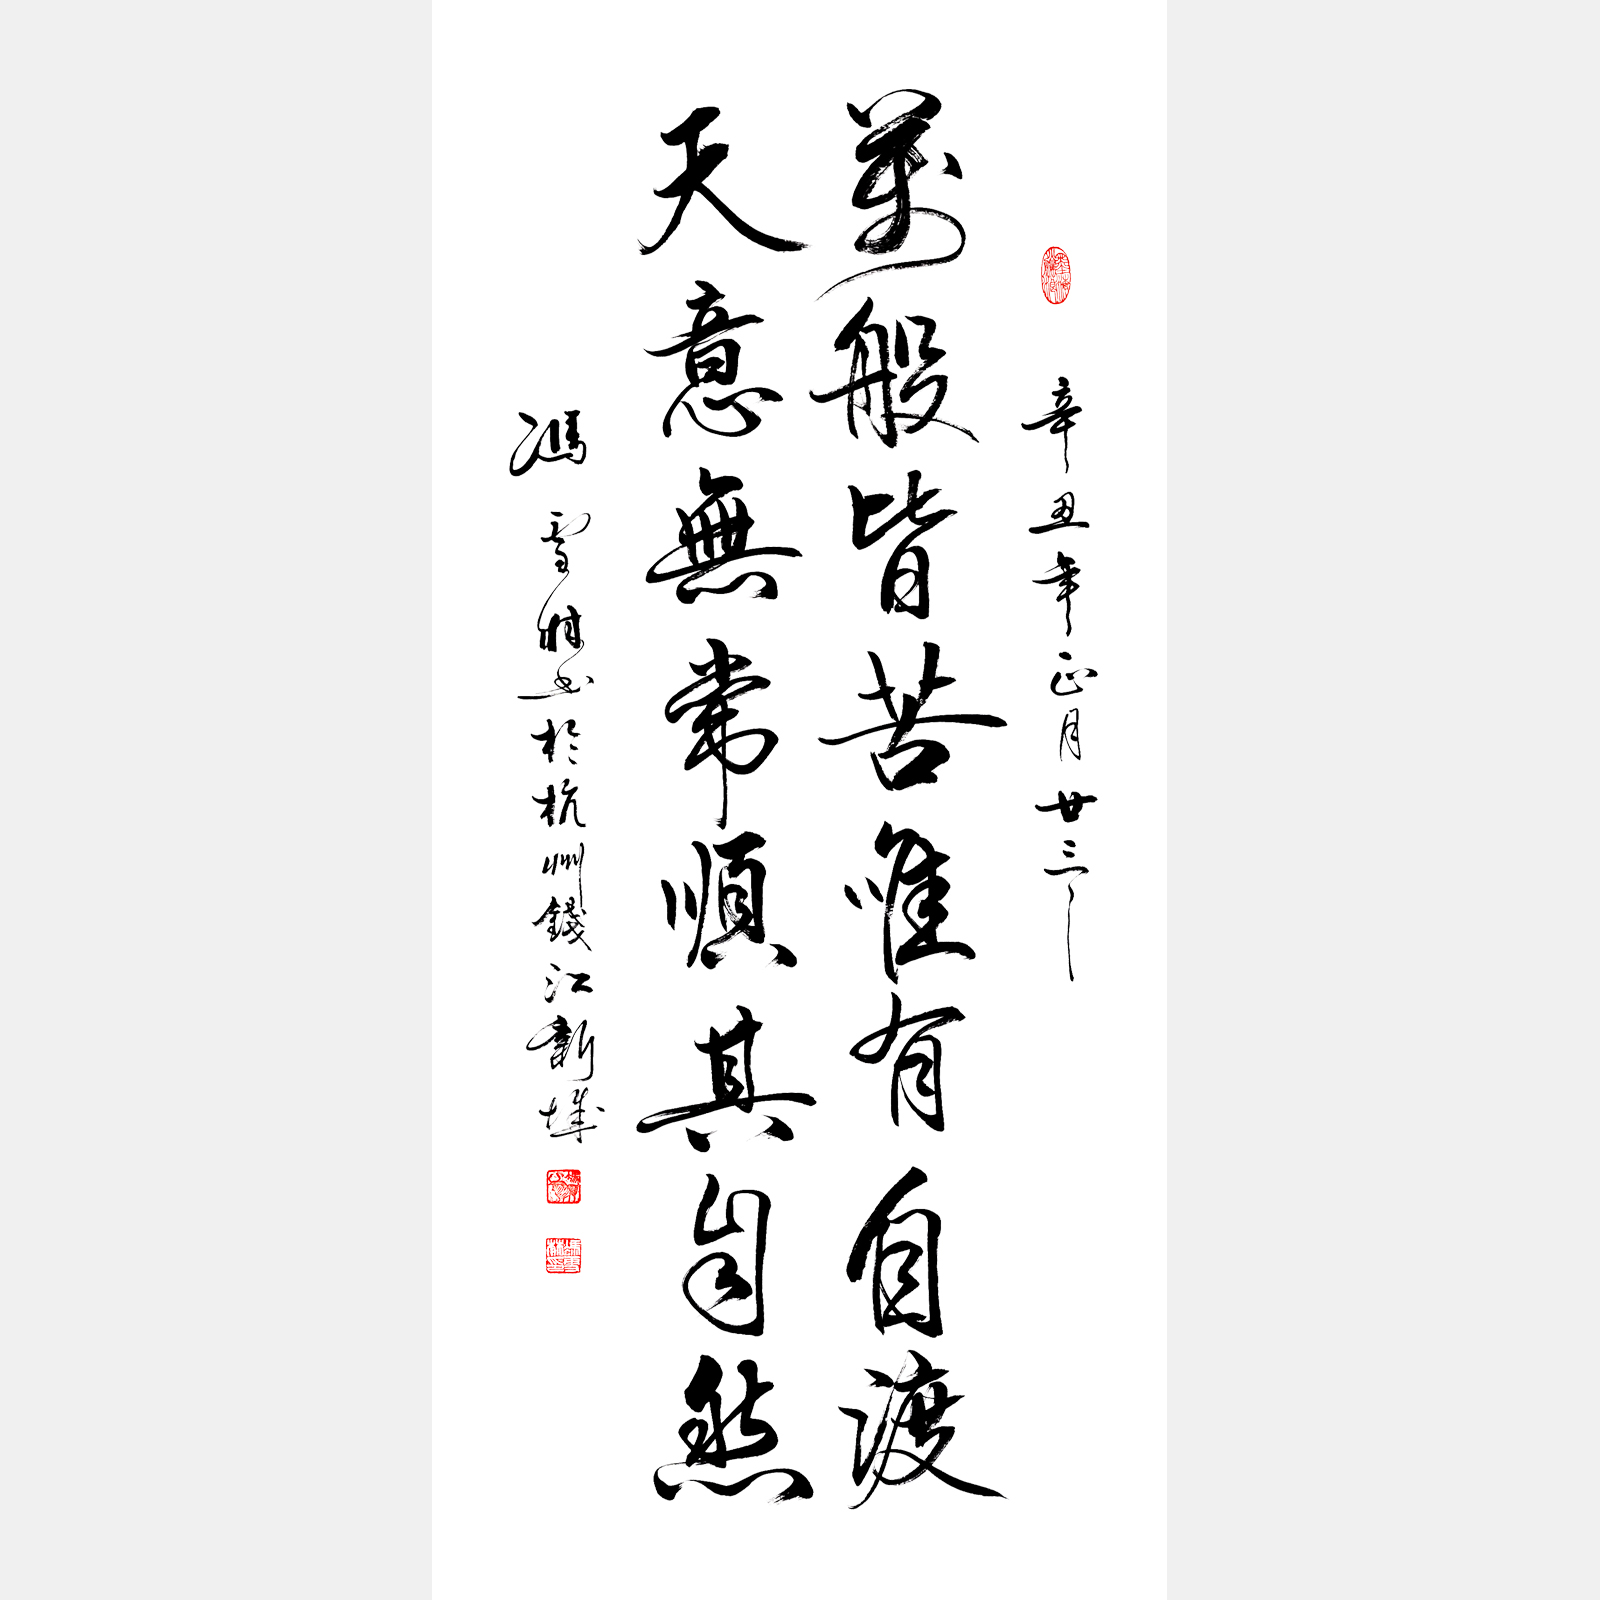 辛丑年正月廿三
萬般皆苦唯有自渡
天意無常順其自然
馮雪林书於杭州錢江新城